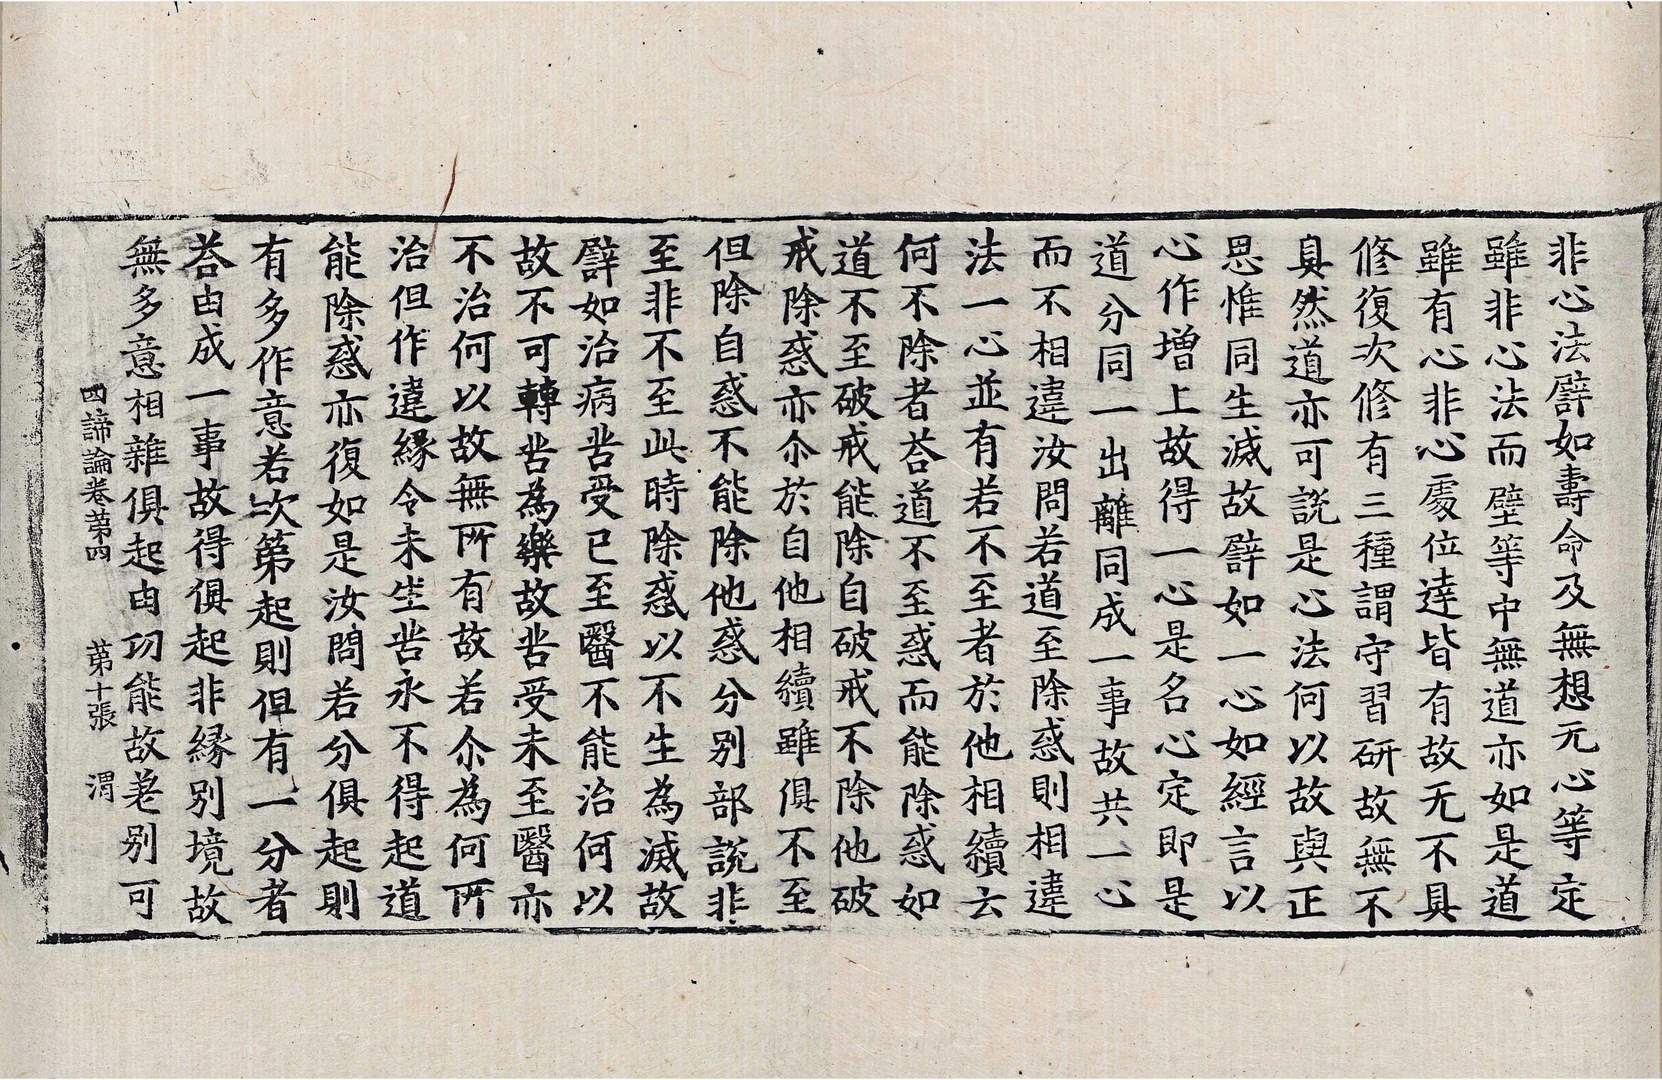 非心法譬如壽命及無想无心等定
雖非心法而壁等中無道亦如是道
雖有心非心處位達皆有故无不具
修復次修有三種謂守習研故無不
具然道亦可說是心法何以故與正
思惟同生滅故譬如一心如經言以
心作增上故得一心是名心定即是
道分同一出離同成一事故共一心
而不相違汝問若道至除惑則相違
法一心並有若不至者於他相續云
何不除者荅道不至惑而能除惑如
道不至破戒能除自破戒不除他破
戒除惑亦尒於自他相續雖俱不至
但除自惑不能除他惑分別部說非
至非不至此時除惑以不生為滅故
譬如治病苦受已至醫不能治何以
故不可轉苦為樂故苦受未至醫亦
不治何以故無所有故若尒為何所
治但作違緣令未生苦永不得起道
能除惑亦復如是汝問若分俱起則
有多作意若次第起則但有一分者
荅由成一事故得俱起非緣別境故
無多意相雜俱起由功能故差別可
四諦論卷第四 第十張 渭